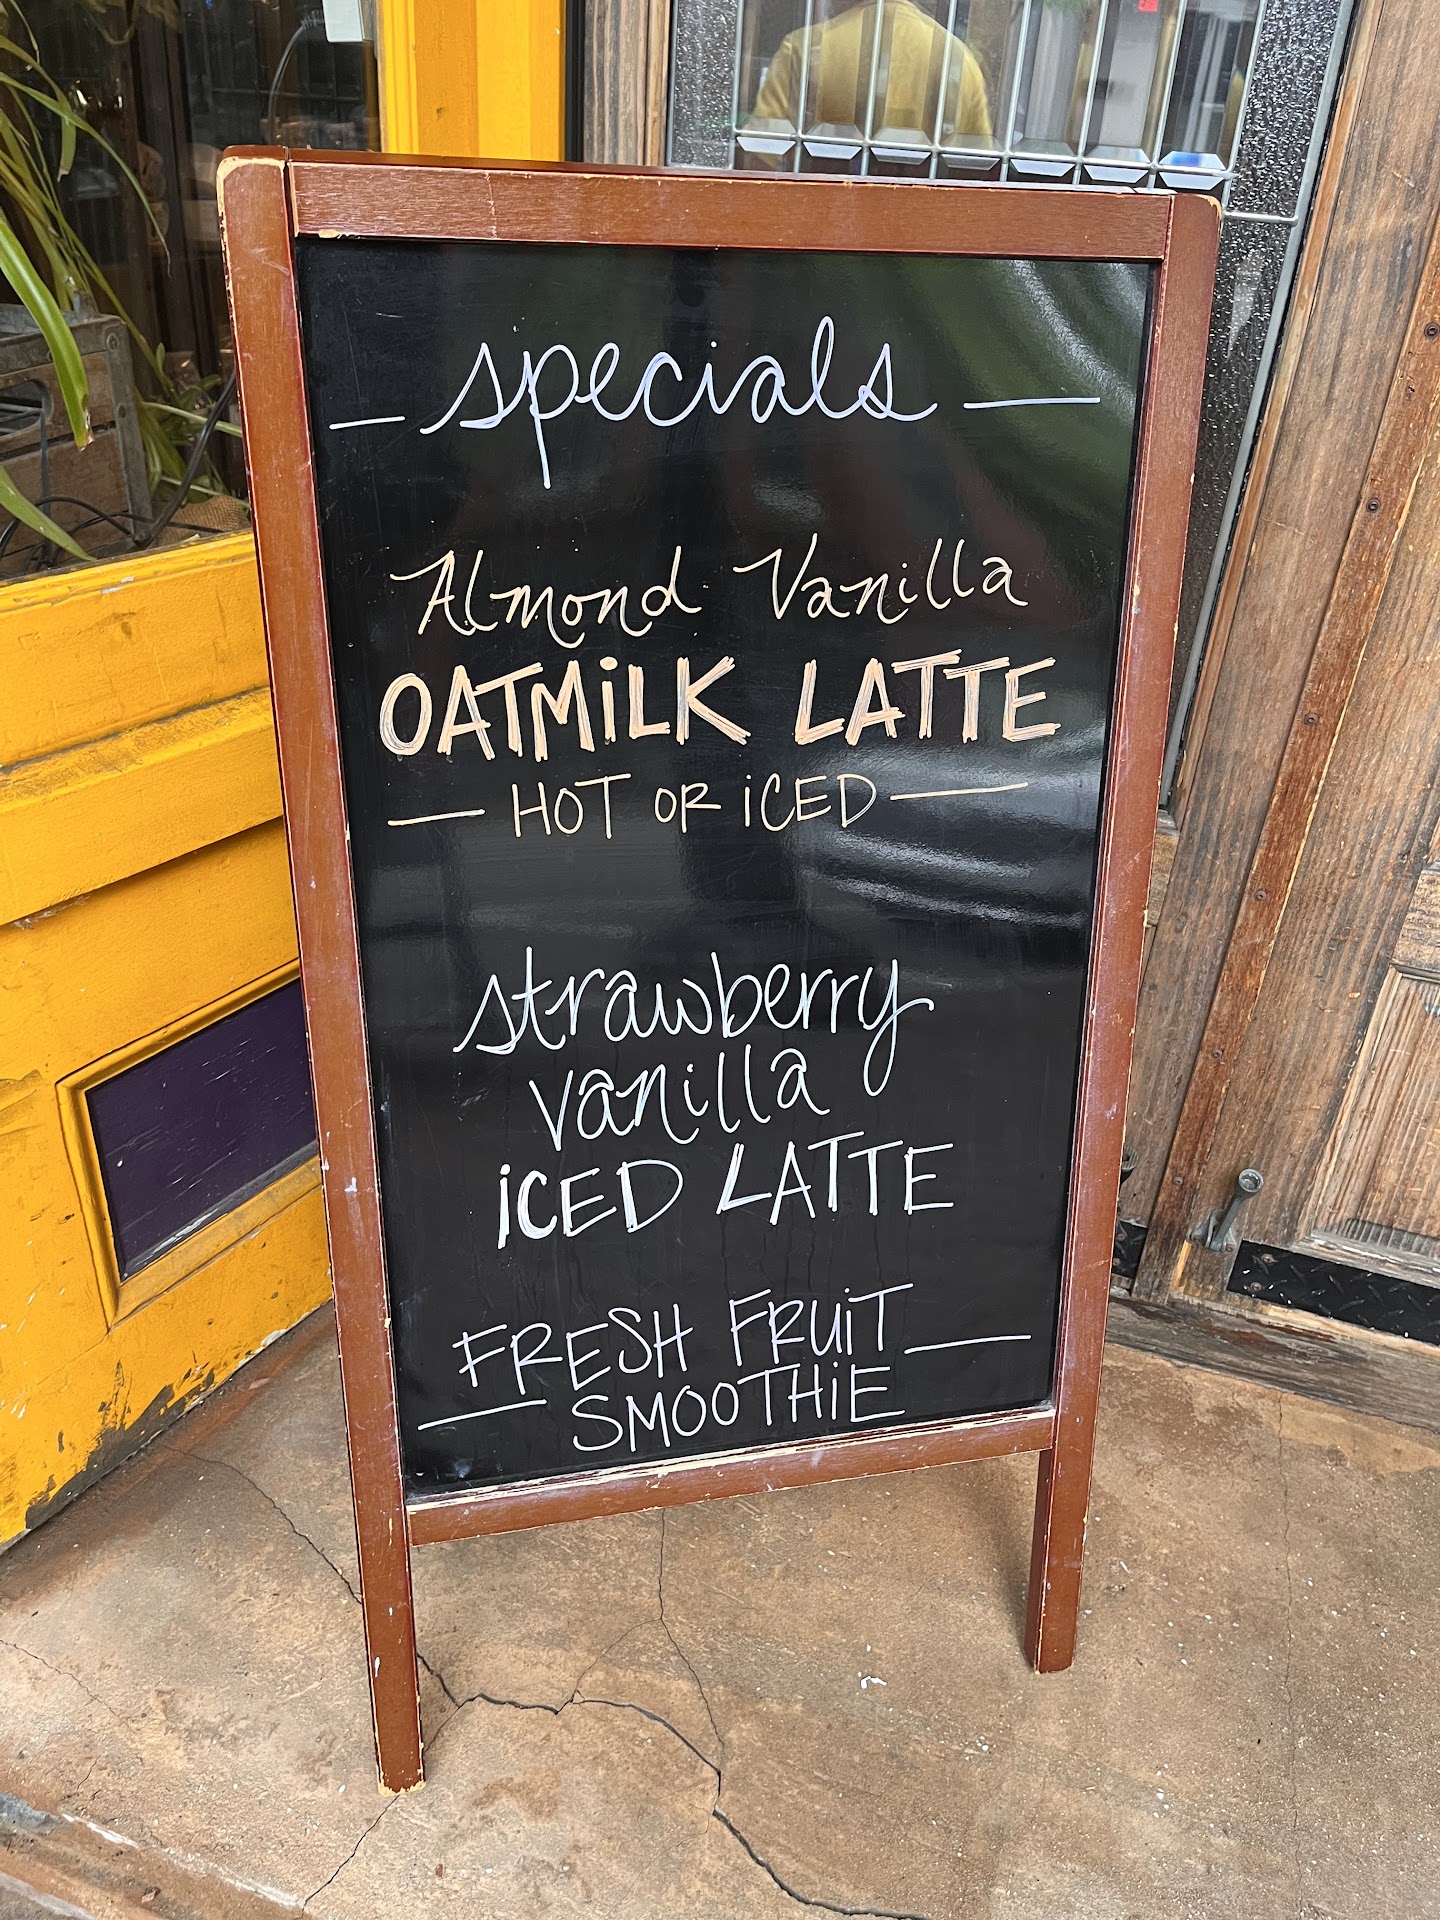 specials
Almond Vanilla
OATMiLK LATTE
HOT OR iCED
strawberry
vanilla
iCED LATTE
FRESH FRUiT
SMOOTHiE